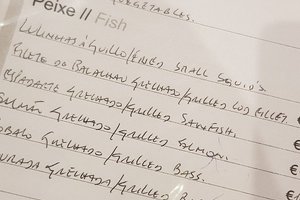 VEGETABLES.
Peixe // Fish
LULINHAS Á GUILLO/FRIED SMALL SQUID'S €
FILETE DO BACALHAU GRELHADO/GRILLED COD FILLET €
ESPADARTE GRELHADO/GRILLED SAWFISH. €
SALMÃO GRELHADO/GRILLED SALMON. €
ROBALO GRELHADO/GRILLED BASS. €
DOURADA GRELHADA/GRILLED